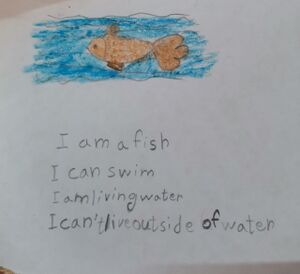 I am a fish
I can swim
I am living water
I can't live outside of water